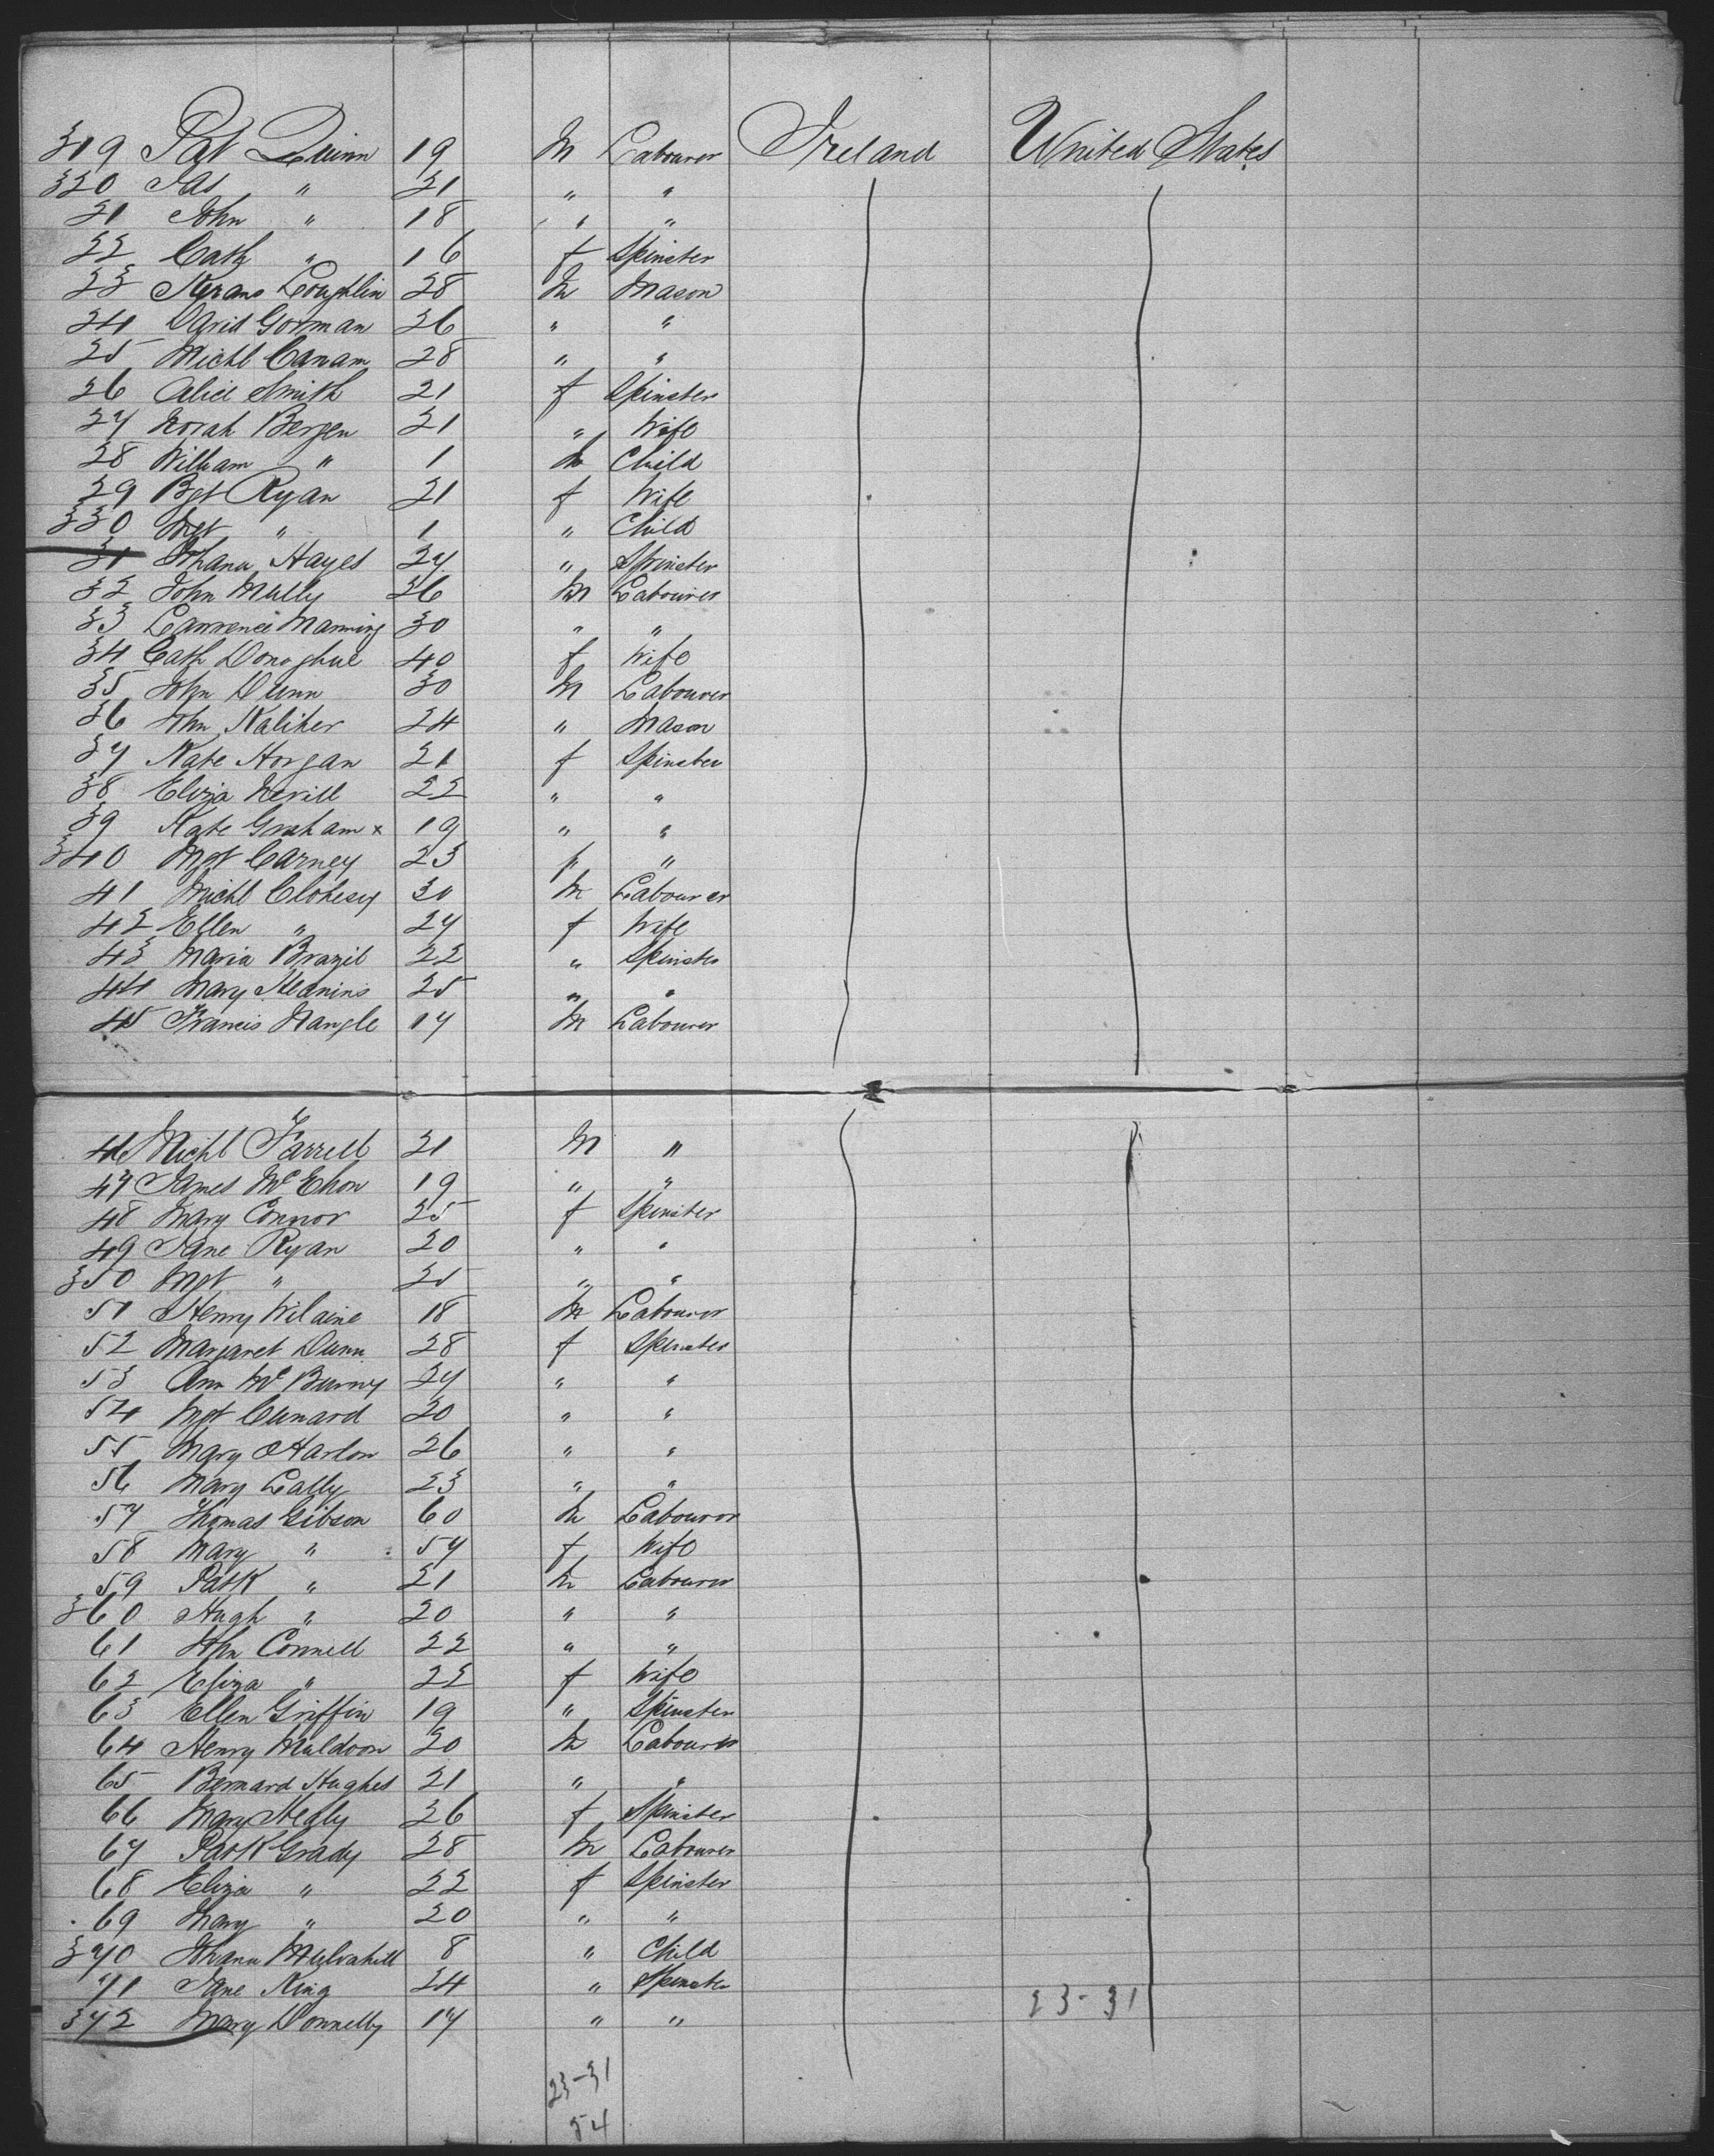 319 Pat Quinn 19 M Labourer Ireland United States
320 Jas " 21 " "
21 John " 18 " "
22 Cath " 16 f Spinster
23 Kerans Loughlin 28 M Mason
24 David Gorman 26 " "
25 Michl Canam 28 " "
26 Alice Smith 21 f Spinster
27 Norah Bergen 21 " Wife
28 William " 1 M Child
29 Bgt Ryan 21 f Wife
330 Mgt " 1 " Child
31 Johana Hayes 27 " Spinster
32 John Mully 26 M Labourer
33 Lawrence Manning 30 " "
34 Cath Donoghue 40 f Wife
35 John Dunn 30 M Labourer
36 John Kaliher 24 " Mason
37 Kate Horgan 21 f Spinster
38 Eliza Nevill 22 " "
39 Kate Graham x 19 " "
340 Mgt Carney 23 " "
41 Michl Clohesy 30 M Labourer
42 Ellen " 27 f Wife
43 Maria Brazil 22 " Spinster
44 Mary 25 " "
45 Francis Nangle 17 M Labourer
46 Michl Farrell 21 M "
47 James McEhon 19 " "
48 Mary Connor 25 f Spinster
49 Jane Ryan 20 " "
350 Mgt " 25 " "
51 Henry Wilaine 18 M Labourer
52 Margaret Dunn 28 f Spinster
53 Ann McBurny 27 " "
54 Mgt Cunard 20 " "
55 Mary OHarlon 26 " "
56 Mary Lally 23 " "
57 Thomas Gibson 60 M Labourer
58 Mary " 57 f Wife
59 Patk " 21 M Labourer
360 Hugh " 20 " "
61 John Connell 22 " "
62 Eliza " 22 f Wife
63 Ellen Griffin 19 " Spinster
64 Henry Muldoon 20 M Labourer
65 Bernard Hughes 21 " "
66 Mary Healy 26 f Spinster
67 Patk Grady 28 M Labourer
68 Eliza " 22 f Spinster
69 Mary " 20 " "
370 Johana Mulvahill 8 " Child
71 Jane King 24 " Spinster
23-31
372 Mary Donnelly 17 " "
23-31
54